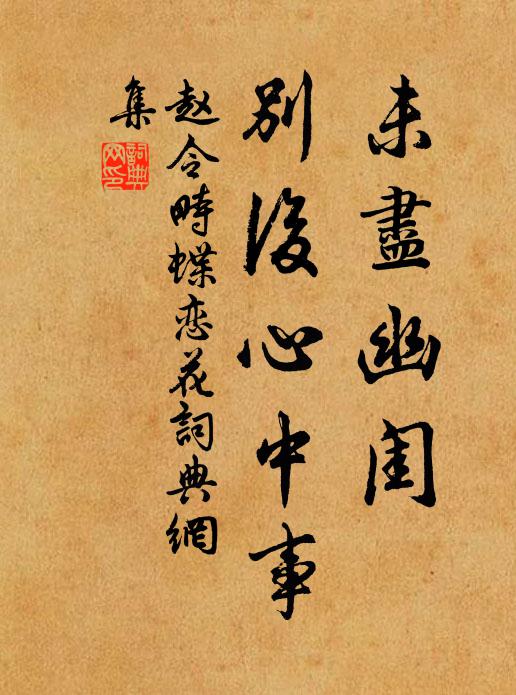 未盡幽闺
別後心中事
赵令畤蝶恋花詞典網
集
詞典
网印